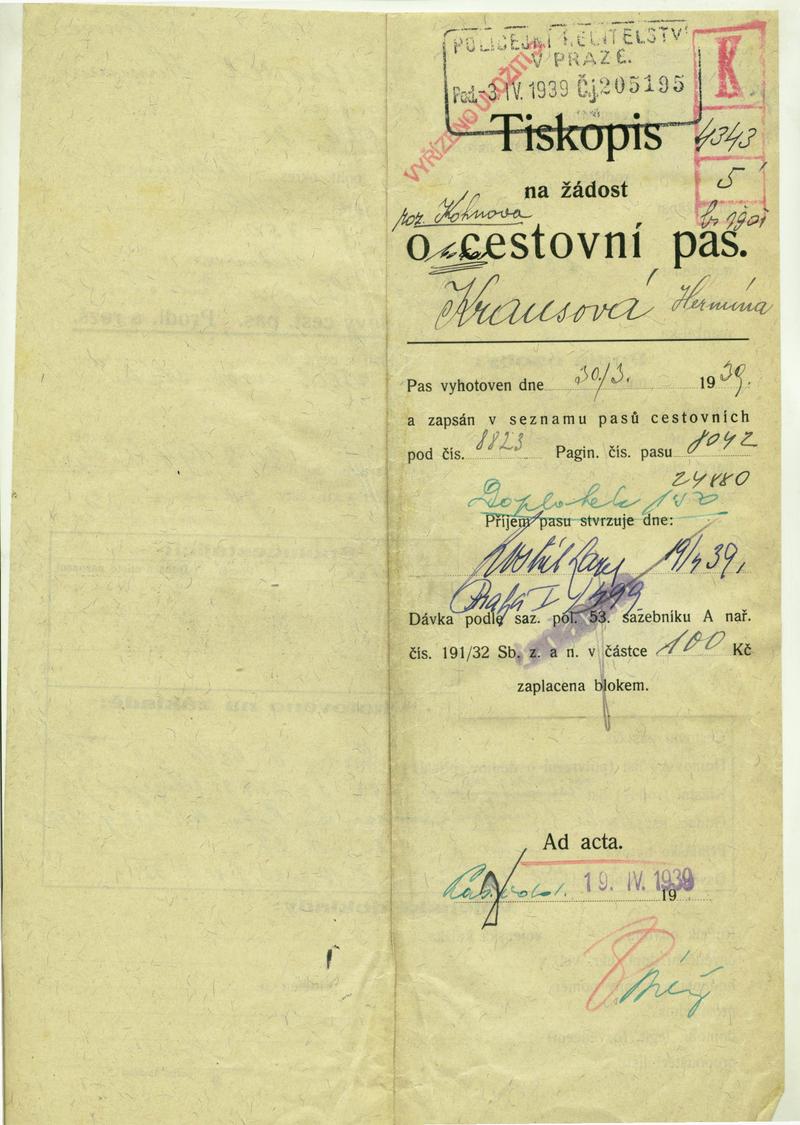 POLICEJNÍ ŘEDITELSTVÍ
V PRAZE.
Pod. -3. IV. 1939 Čj. 205195
VYŘÍZENO ULOŽITI
K
4343
5
Tiskopis
na žádost
roz. Kohnova
o cestovní pas.
Krausová Hermína
Pas vyhotoven dne 30/3. 1939.
a zapsán v seznamu pasů cestovních
pod čís. 8823 Pagin. čís. pasu 8042
24880
Doplatek
Příjem pasu stvrzuje dne:
19/4 39.
Praha I
Dávka podle saz. pol. 53. sazebníku A nař.
čís. 191/32 Sb. z. a n. v částce 100 Kč
zaplacena blokem.
Ad acta.
19. IV. 1939
19